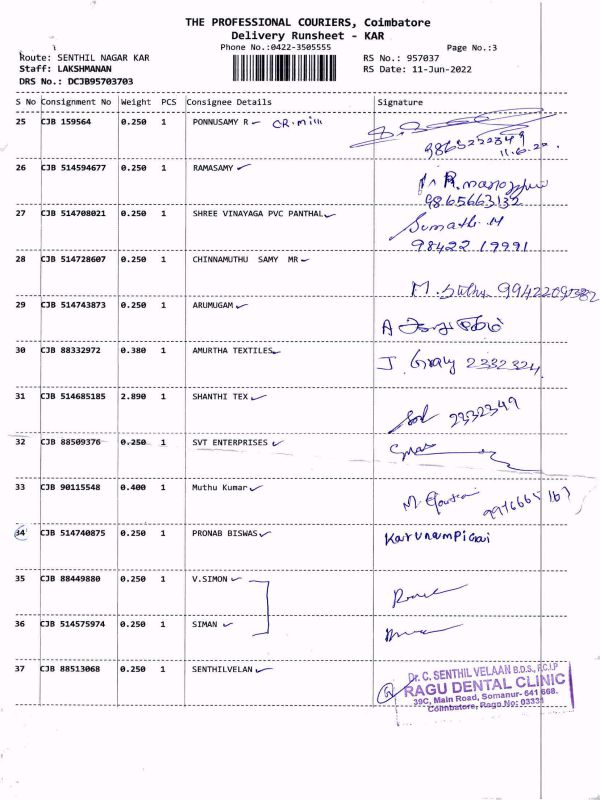 THE PROFESSIONAL COURIERS, Coimbatore
Delivery Runsheet - KAR
Phone No.:0422-3505555
Page No.:3
Route: SENTHIL NAGAR KAR
RS No.: 957037
Staff: LAKSHMANAN
RS Date: 11-Jun-2022
DRS No.: DCJB95703703
S No Consignment No Weight PCS Consignee Details Signature
25 CJB 159564 0.250 1 PONNUSAMY R - CR.mill
9865222349
26 CJB 514594677 0.250 1 RAMASAMY
9865663132
27 CJB 514708021 0.250 1 SHREE VINAYAGA PVC PANTHAL Sumathi.M
98422 19991
28 CJB 514728607 0.250 1 CHINNAMUTHU SAMY MR
29 CJB 514743873 0.250 1 ARUMUGAM
30 CJB 88332972 0.380 1 AMURTHA TEXTILES 2332324
31 CJB 514685185 2.890 1 SHANTHI TEX 2332349
32 CJB 88509376 0.250 1 SVT ENTERPRISES
33 CJB 90115548 0.400 1 Muthu Kumar
34 CJB 514740875 0.250 1 PRONAB BISWAS Karunampigai
35 CJB 88449880 0.250 1 V.SIMON
36 CJB 514575974 0.250 1 SIMAN
37 CJB 88513068 0.250 1 SENTHILVELAN
Dr. C. SENTHIL VELAAN B.D.S., F.C.I.P
RAGU DENTAL CLINIC
39C, Main Road, Somanur- 641 668.
Coimbatore, Rago No: 03331